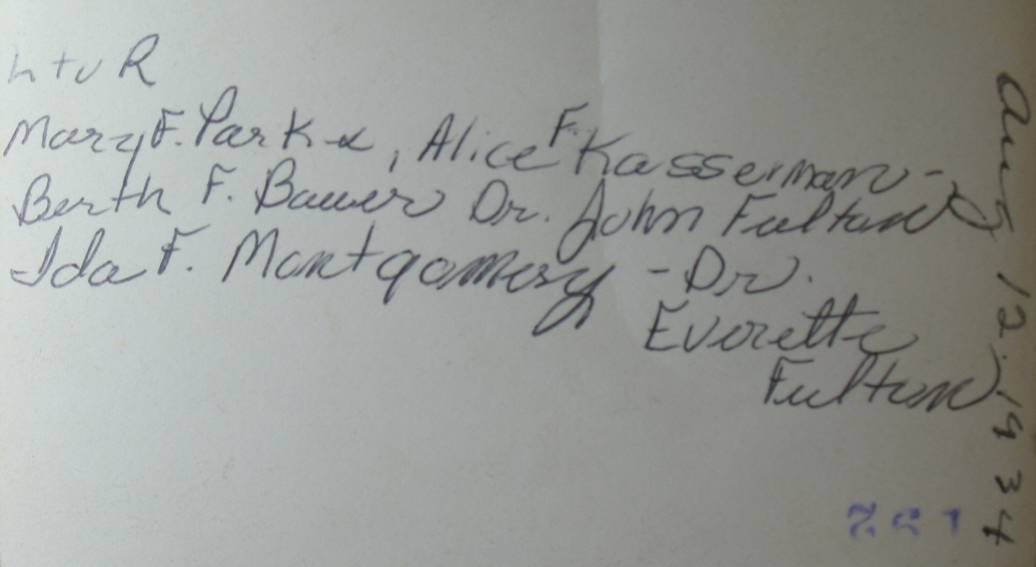 L to R
Mary F. Parke, Alice F. Kasserman -
Berth F. Bauer Dr. John Fulton
Ida F. Montgomery - Dr.
Everette
Fulton
Aug 12, 1934